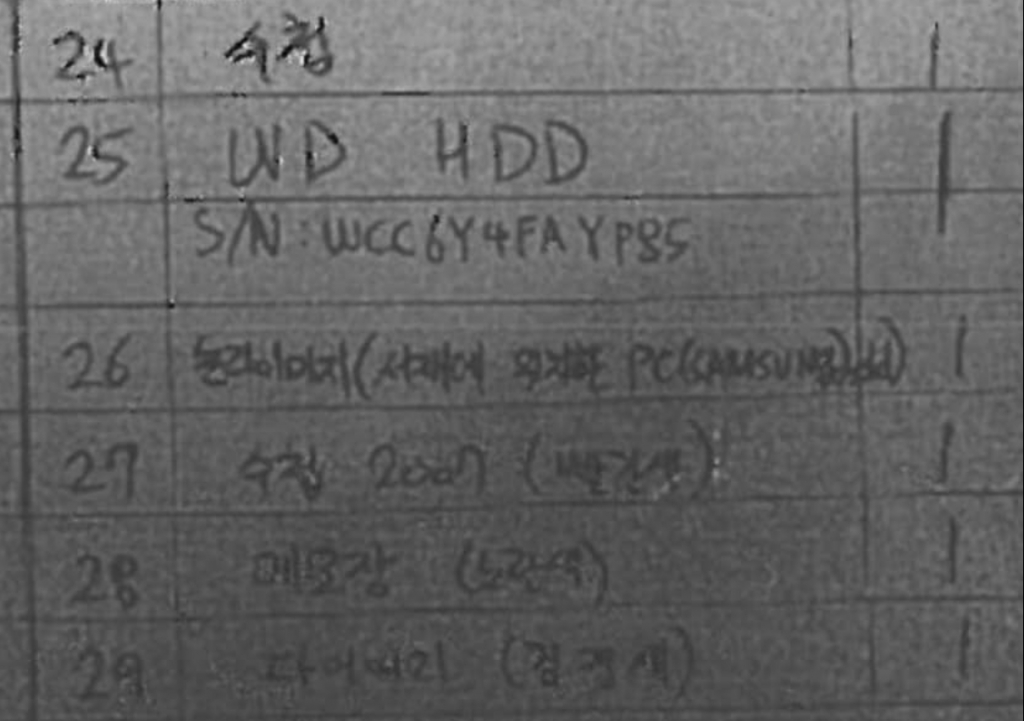 24 수첩 1
25 WD HDD 1
S/N : WCC6Y4FAYP85
26 논리이미지(서재에 위치한 PC(SAMSUNG) 1
27 수첩 2007 (빨간색) 1
28 메모장 (노란색) 1
29 다이어리 (검정색) 1